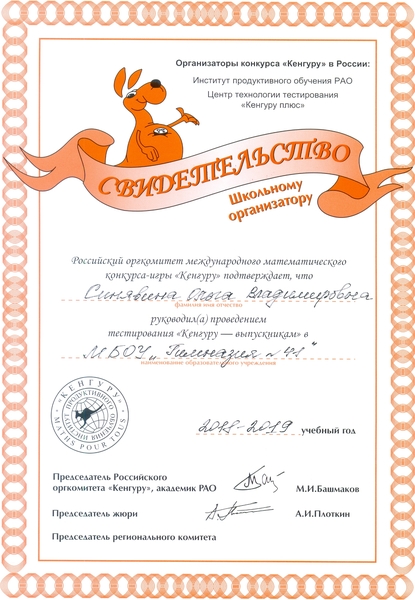 Организаторы конкурса «Кенгуру» в России:
Институт продуктивного обучения РАО
Центр технологии тестирования
«Кенгуру плюс»
СВИДЕТЕЛЬСТВО
Школьному
организатору
Российский оргкомитет международного математического
конкурса-игры «Кенгуру» подтверждает, что
Синявина Ольга Владимировна
фамилия имя отчество
руководил(а) проведением
тестирования «Кенгуру — выпускникам» в
МБОУ „Гимназия №41"
наименование образовательного учреждения
«КЕНГУРУ»
ПРОДУКТИВНОГО
MATHS POUR TOUS
2018-2019 учебный год
Председатель Российского
оргкомитета «Кенгуру», академик РАО М.И.Башмаков
Председатель жюри А.И.Плоткин
Председатель регионального комитета